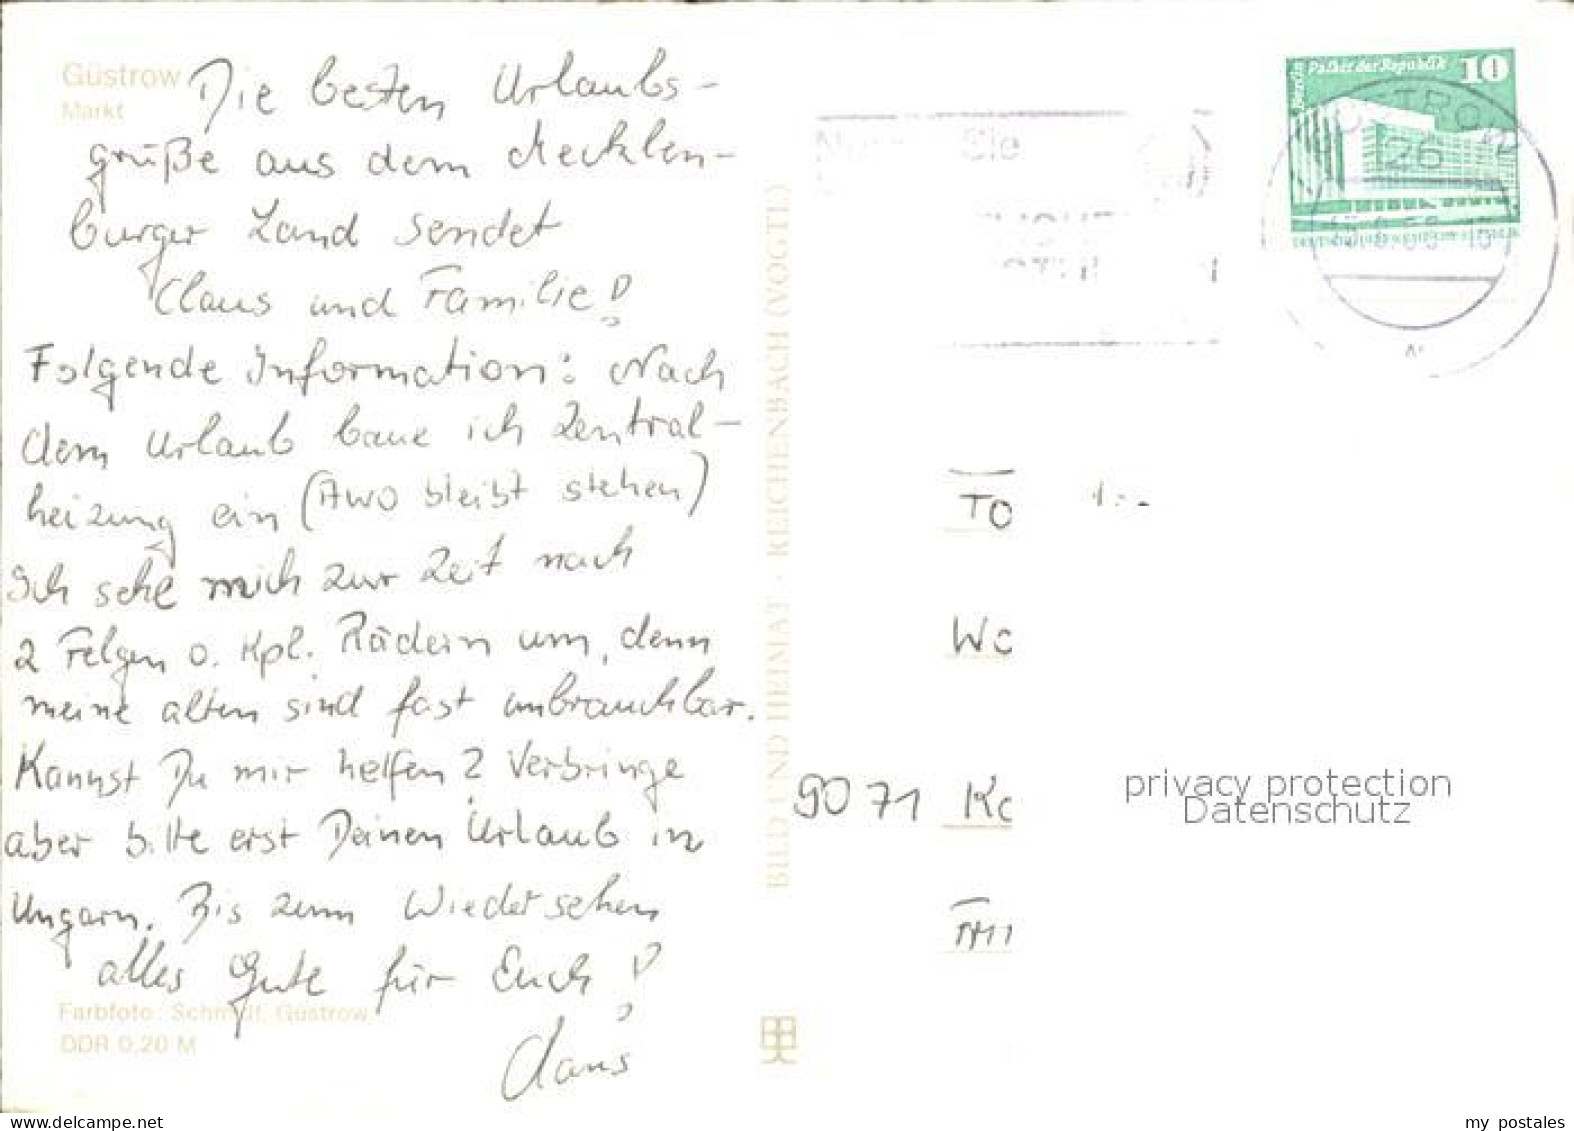 Güstrow
Markt
Die besten Urlaubs-
grüße aus dem Mecklen-
burger Land sendet
Claus und Familie!
Folgende Information: Nach
dem Urlaub baue ich Zentral-
heizung ein (AWO bleibt stehen)
Ich sehe mich zur Zeit nach
2 Felgen o. kpl. Rädern um, denn
meine alten sind fast unbrauchbar.
Kannst Du mir helfen? Verbringe
aber bitte erst Deinen Urlaub in
Ungarn. Bis zum Wiedersehen
alles Gute für Euch!
Claus
Farbfoto: Schmidt, Güstrow
DDR 0,20 M
BILD UND HEIMAT · REICHENBACH (VOGTL)
Berlin
Palast der Republik 10
26
Sie
TO
9071 
privacy protection
Datenschutz
www.delcampe.net
my postales